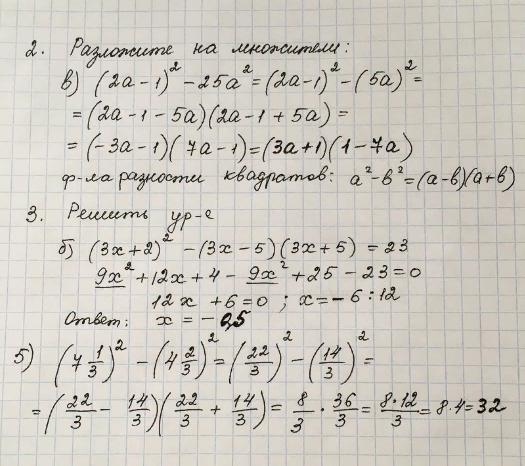 2. Разложите на множители:
в) (2a-1)² - 25a² = (2a-1)² - (5a)² =
= (2a-1-5a)(2a-1+5a) =
= (-3a-1)(7a-1) = (3a+1)(1-7a)
ф-ла разности квадратов: a²-в²=(a-в)(a+в)
3. Решить ур-е
б) (3x+2)² - (3x-5)(3x+5) = 23
9x² + 12x + 4 - 9x² + 25 - 23 = 0
12x + 6 = 0 ; x = - 6 : 12
Ответ: x = - 0,5
5) (7 1/3)² - (4 2/3)² = (22/3)² - (14/3)² =
= (22/3 - 14/3)(22/3 + 14/3) = 8/3 · 36/3 = 8·12/3 = 8·4 = 32